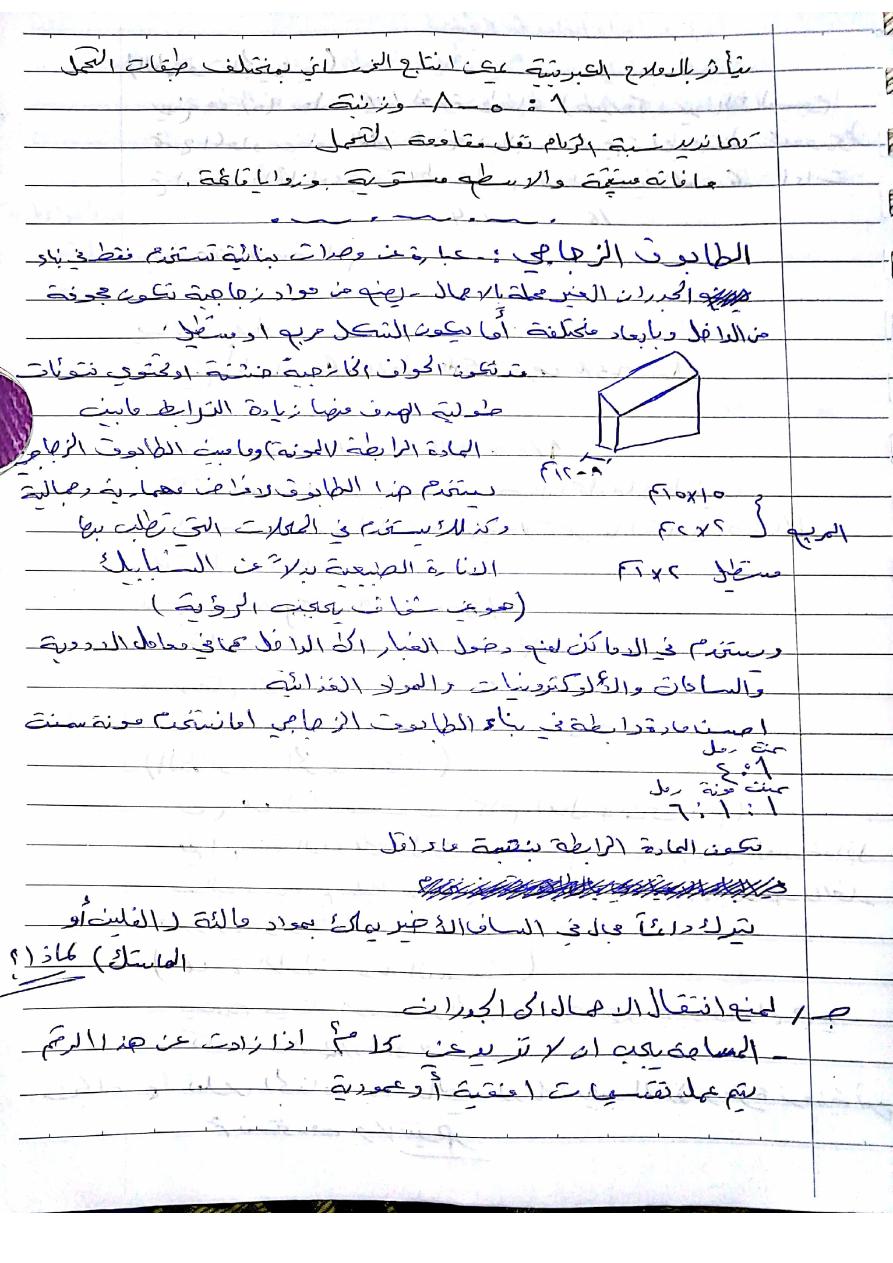 يتأثر بالاملاح الكبريتية يمكن انتاج الخرساني بمختلف طبقات التحمل
١ : ٥ - ٨ وزنية
كما تزيد نسبة الركام تقل مقاومة التحمل
حافاته مستقيمة والاسطح مستوية وزوايا قائمة .
الطابوق الزجاجي :- عبارة عن وحدات بنائية تستخدم فقط في بناء
الجدران الغير محملة بالاحمال - يصنع من مواد زجاجية تكون مجوفة
من الداخل وبأبعاد مختلفة أما يكون الشكل مربع او مستطيل .
قد تكون الحواف الخارجية خشنة او تحتوي نتوئات
طولية الهدف منها زيادة الترابط مابين
المادة الرابطة (المونة) وما مبين الطابوق الزجاجي
٨-١٢م
يستخدم هذا الطابوق لاغراض معمارية وجمالية
١٥×١٥م
المربع
وكذلك يستخدم في المحلات التي تطلب بها
٢×٢م
الانارة الطبيعية بدلاً عن الشبابيك
مستطيل ٢×١م
(هو شفاف يحجب الرؤية)
ويستخدم في الاماكن لمنع دخول الغبار الى الداخل كما في معامل الادوية
والساعات والألوكترونيات والمواد الغذائية
احسن مادة رابطة في بناء الطابوق الزجاجي اما نستخدم مونة سمنت
سمنت رمل
١ : ٤
سمنت مونة رمل
١ : ١ : ٦
تكون المادة الرابطة بنسبة ماء اقل
يترك دائماً مجال في الساف الأخير يملئ بمواد مالئة (الفلين أو
الماستك) لماذا (؟
جـ/ لمنع انتقال الاحمال الى الجدران
- المساحة يجب ان لا تزيد عن م٢ اذا زادت عن هذا الرقم
يتم عمل تقسيمات افقية أو عمودية